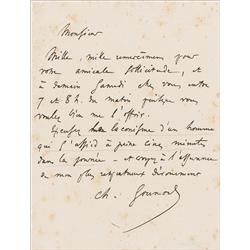 Monsieur
Mille, mille remerciements pour
votre amicale sollicitude, et
à demain Samedi chez vous entre
7 et 8 h. du matin puisque vous
voulez bien me l'offrir.
Excusez le laconisme d'un homme
qui a à peine cinq minutes
dans la journée - et croyez à l'assurance
de mon plus respectueux dévouement
Ch. Gounod